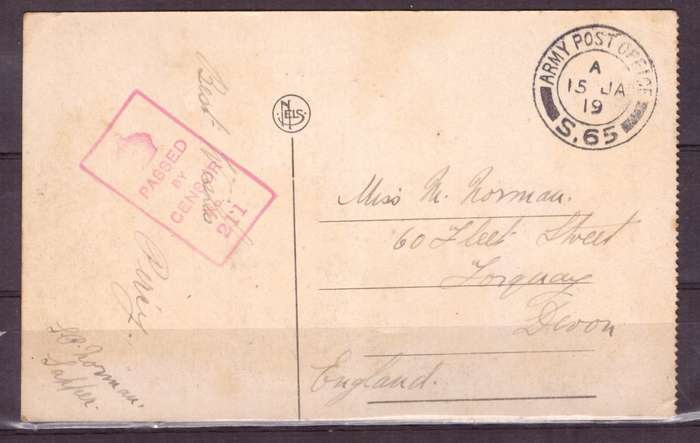 Best Wishes
Percy.
S.P. Norman.
Sapper.
PASSED
BY
CENSOR
No.
2111
NELS
ARMY POST OFFICE
A
15 JA
19
S.65
Miss M. Norman.
60 Fleet Street
Torquay
Devon
England.